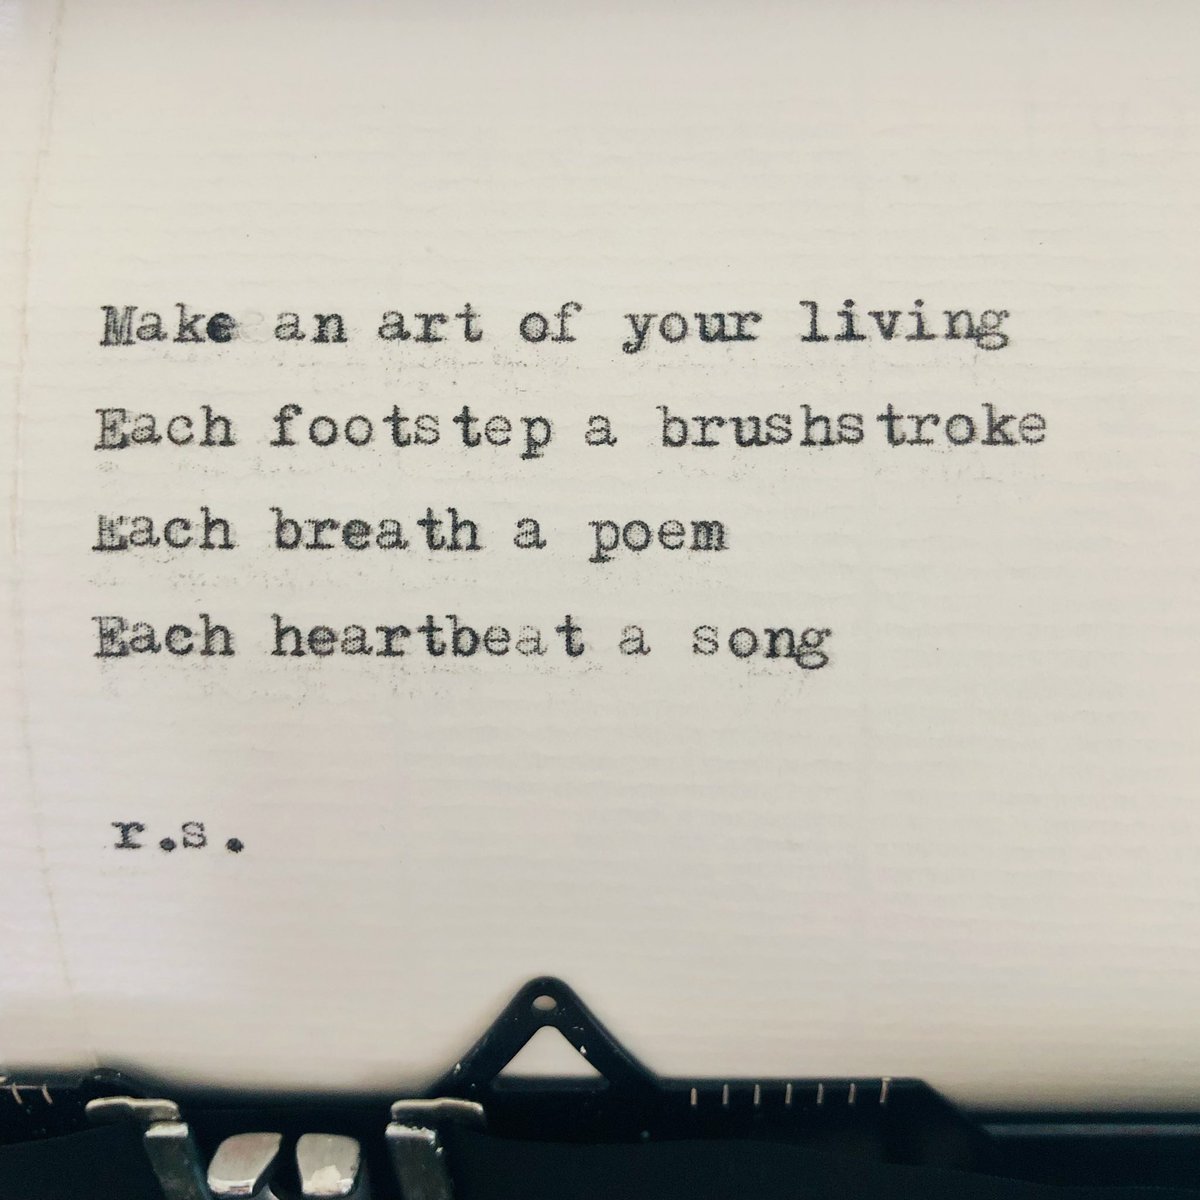 Make an art of your living
Each footstep a brushstroke
Each breath a poem
Each heartbeat a song
r.s.